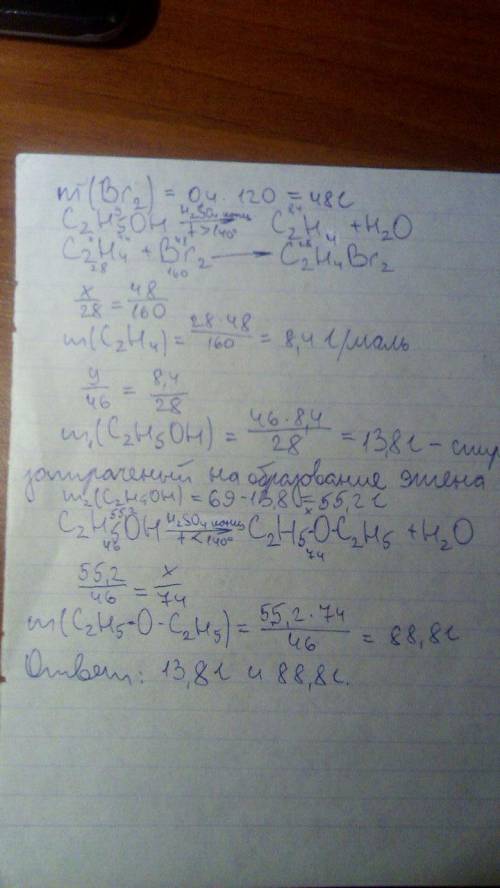 m(Br₂) = 0,4 · 120 = 48г
C₂H₅OH H₂SO₄ конц t > 140° → C₂H₄ + H₂O
C₂H₄ + Br₂ → C₂H₄Br₂
28 160
x/28 = 48/160
m(C₂H₄) = 28·48/160 = 8,4 г/моль
y/46 = 8,4/28
m₁(C₂H₅OH) = 46·8,4/28 = 13,8г – спирт
затраченый на образование этена
m₂(C₂H₅OH) = 69 - 13,8 = 55,2г
55,2 x
C₂H₅OH H₂SO₄ конц t < 140° → C₂H₅-O-C₂H₅ + H₂O
46 74
55,2/46 = x/74
m(C₂H₅-O-C₂H₅) = 55,2·74/46 = 88,8г
Ответ: 13,8г и 88,8г.